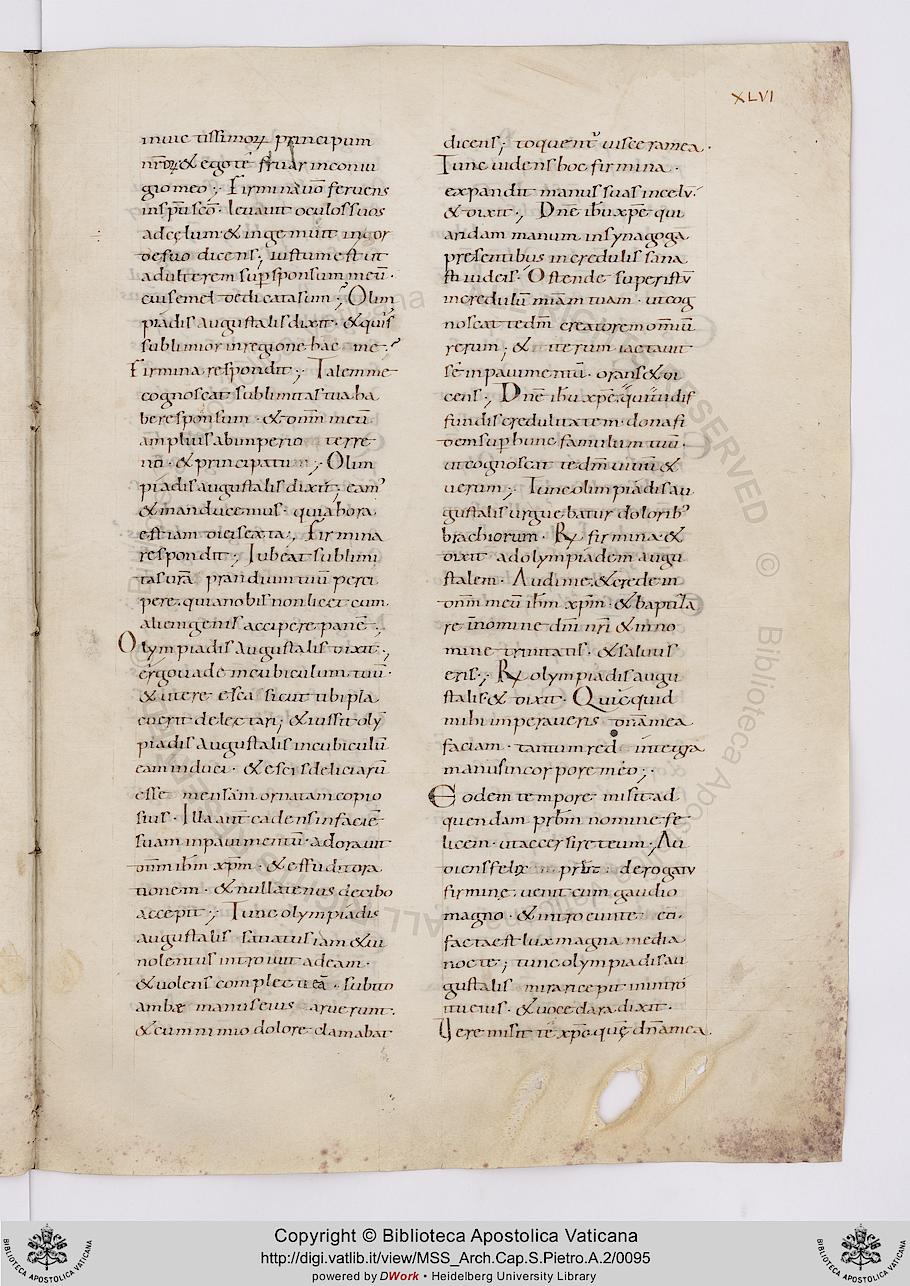 XLVI
inuictissimoꝝ principum
nr̄oꝝ & ego te fruar in coniu
gio meo ; Firmina uō feruens
in sp̄u scō. leuauit oculos suos
ad cęlum & ingemuit in cor
de suo dicens ; iustum est ut
adulterem sup sponsum meū.
cui semel dedicata sum ; Olim
piadis augustalis dixit. & quis
sublimior in regione hac me ?
Firmina respondit ; Talem me
cognoscat sublimitas tua ha
bere sponsum. & dn̄m meū
amplius ab imperio terre
no. & principatu ; Olim
piadis augustalis dixit ; eam'
& manducemus. quia hora
est iam diei sexta ; Firmina
respondit ; Iubeat sublimi
tas ura prandium tuū perci
pere. quia nobis non licet cum
alienigenis accipere panē ;
Olympiadis augustalis dixit ;
ergo uade in cubiculum tuū.
& utere esca sicut tibi pla
cuerit delectari ; & iussit oly
piadis augustalis in cubiculū
eam induci. & escis deliciarū
esse mensam ornatam copio
sius. Illa aut cadens in faciē
suam in pauimentū. adorauit
dn̄m ihm xp̄m. & effudit ora
tionem. & nullatenus de cibo
accepit ; Tunc olympiadis
augustalis
nolentus introiuit ad eam.
& uolens complecti eā. subito
ambę manus eius aruerunt.
& cum nimio dolore clamabat
dicens ; torquent' uiscera mea.
Tunc uidens hoc firmina.
expandit manus suas in cęlū.
& dixit ; Dn̄e ihu xp̄e qui
aridam manum in synagoga
presentibus incredulis sana
sti iudeis. Ostende super istū
incredulū miam tuam. ut cog
noscat te dm̄ creatorem omniū
rerum ; & iterum iactauit
sē in pauimentū. orans & di
cens ; Dn̄e ihu xp̄e qui uidis
fundis credulitatem. dona fi
dem sup hunc famulum tuū.
ut cognoscat te dm̄ uiuū &
uerum ; Tunc olimpiadis au
gustalis urguebatur dolorib'
brachiorum. R firmina &
dixit ad olympiadem augu
stalem. Audi me. & crede in
dn̄m meū ihm xp̄m. & baptiza
re in nomine dn̄i nr̄i & in no
mine trinitatis. & saluus
eris ; R olympiadis augu
stalis & dixit. Quicquid
mihi imperaueris domna mea
faciam. tantum red integra
manus in corpore meo ;
Eodem tempore misit ad
quendam prbm nomine fe
licem. ut accersiret eum. Au
diens felix prbr de rogatu
firmine. uenit cum gaudio
magno. & introeunte eū.
facta est lux magna media
nocte ; tunc olympiadis au
gustalis in introi
tu eius. & uoce clara dixit.
Uere misit te xp̄s quę dn̄a mea.
Copyright © Biblioteca Apostolica Vaticana
http://digi.vatlib.it/view/MSS_Arch.Cap.S.Pietro.A.2/0095
powered by DWork • Heidelberg University Library